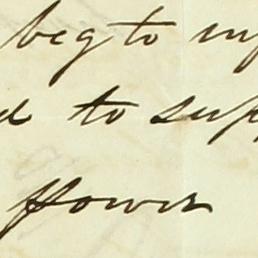 beg to inf
d to supp
power